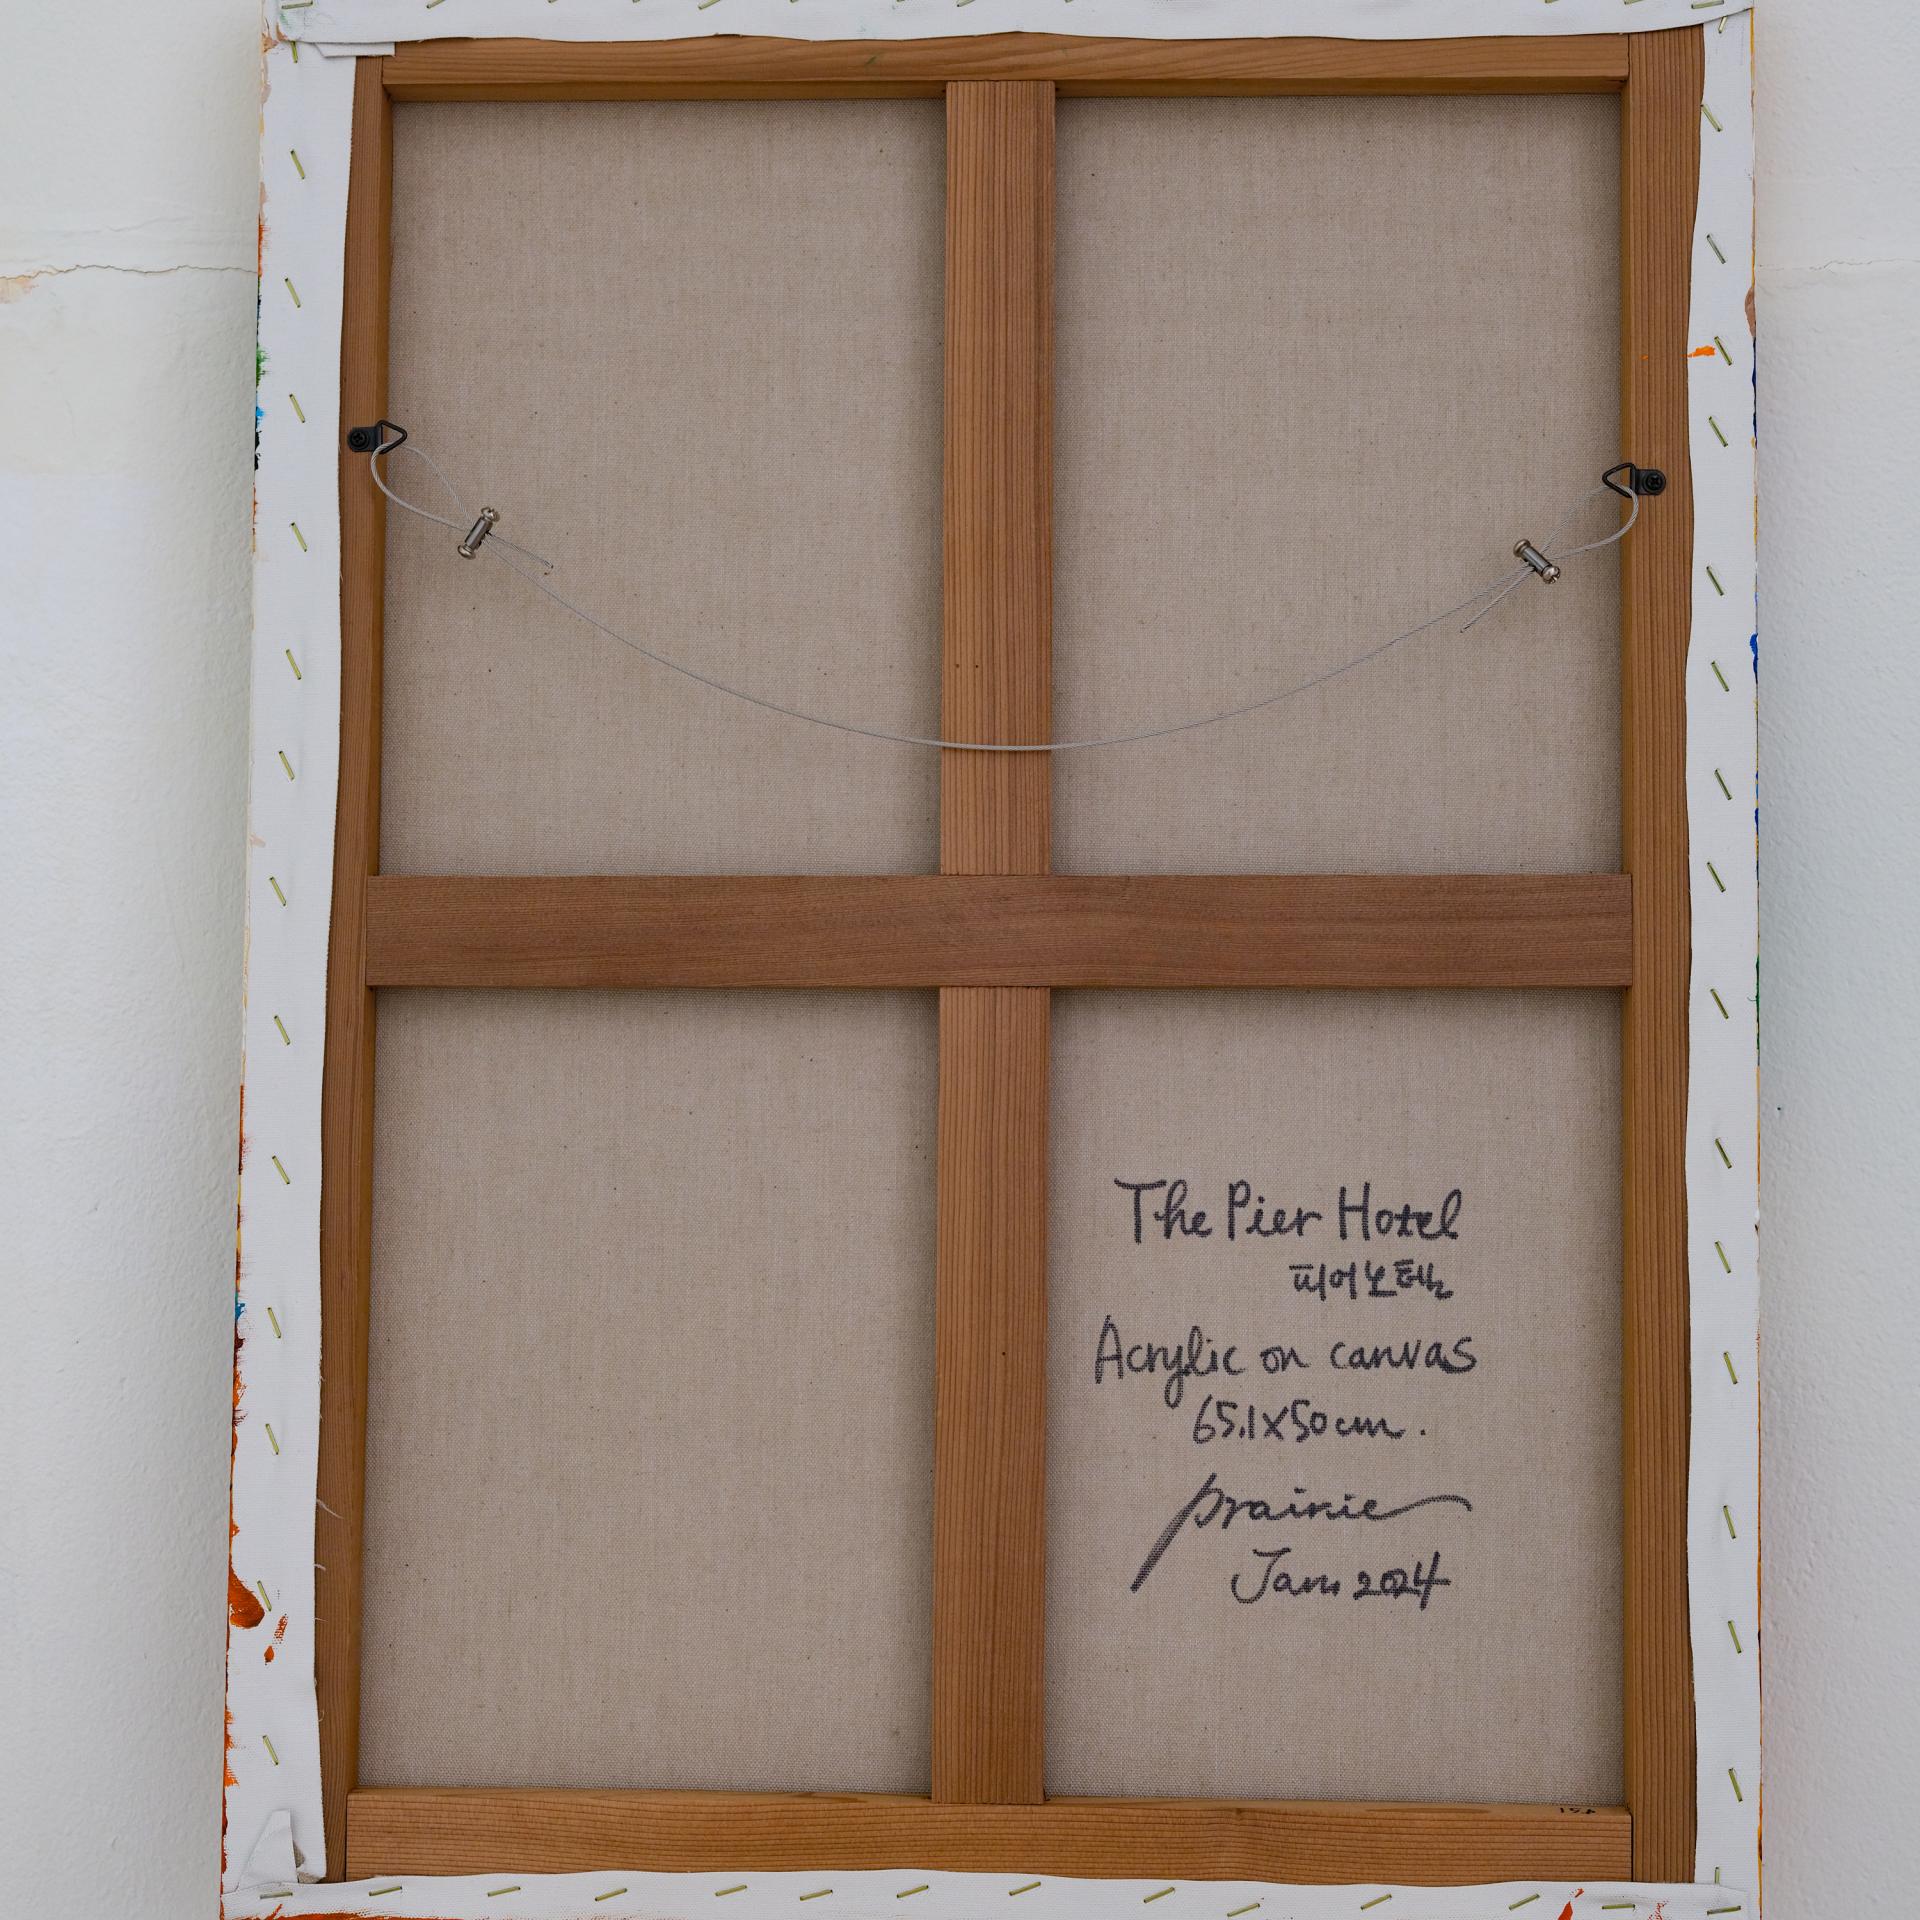 The Pier Hotel
피어호텔
Acrylic on canvas
65.1X50cm.
prairie
Jan. 2024